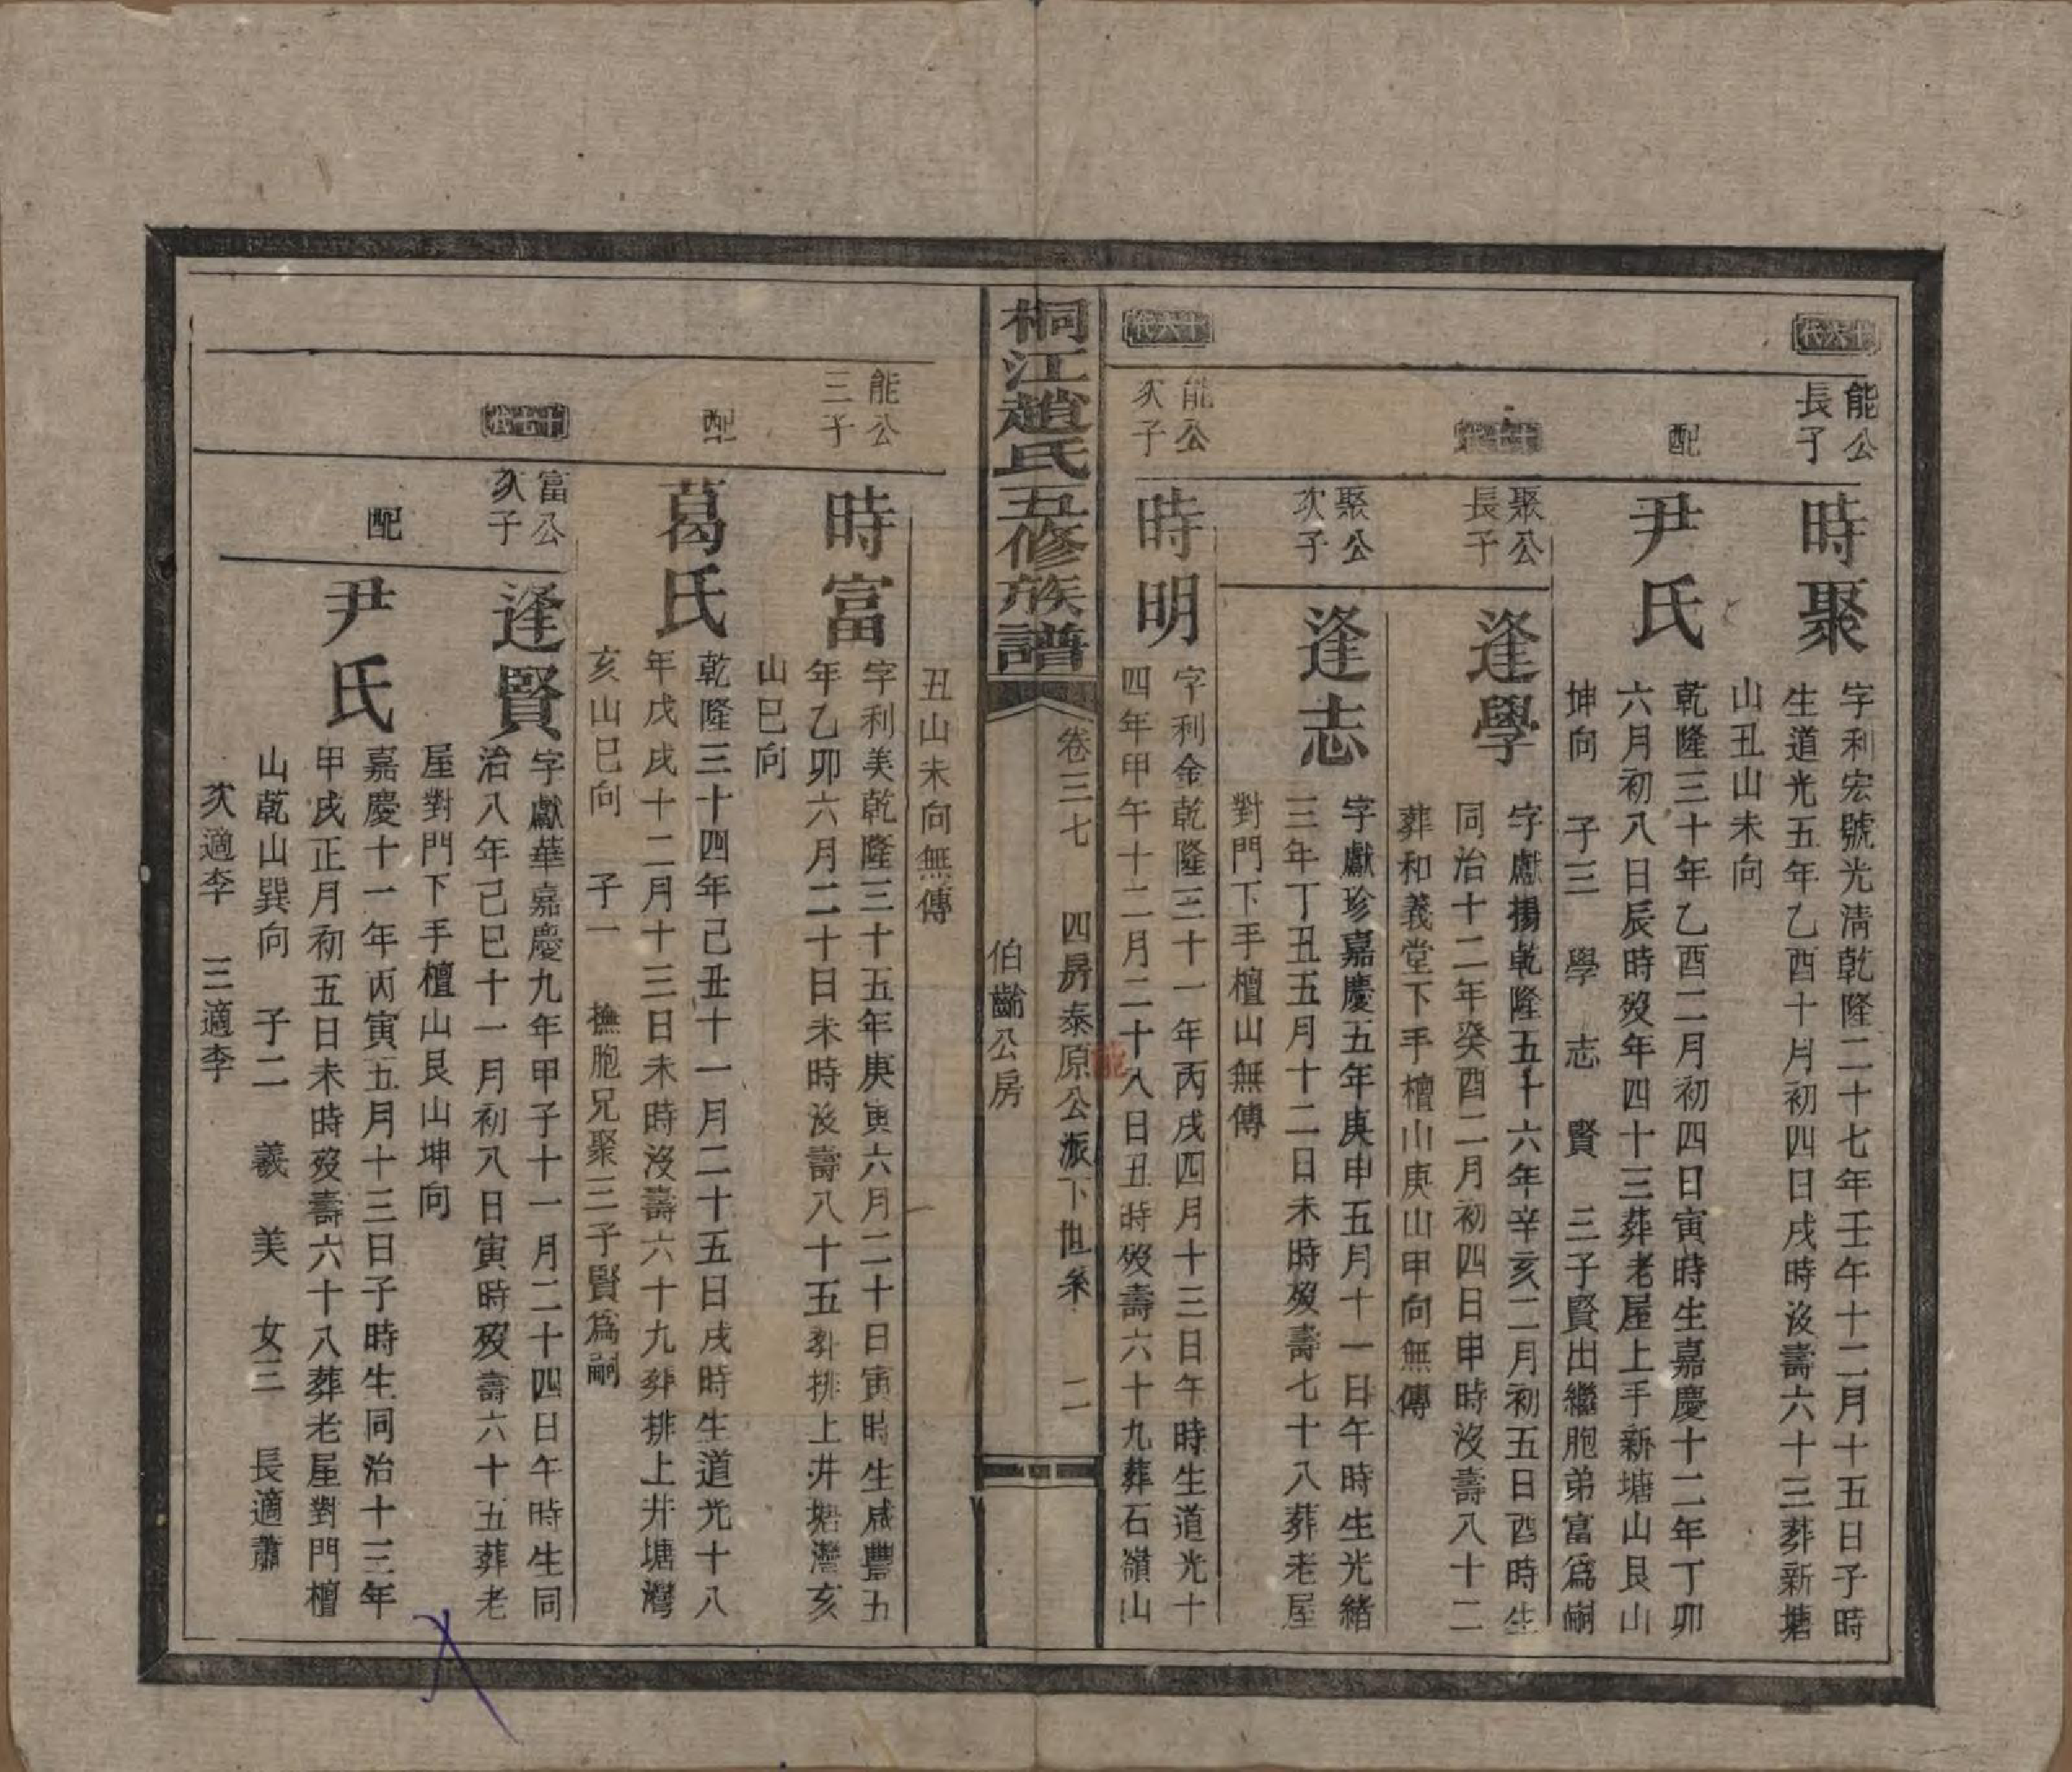 十六代
能公
長子
時聚
字利宏號光清乾隆二十七年壬午十二月十五日子時
生道光五年乙酉十月初四日戌時沒壽六十三葬新塘
山丑山未向
配
尹氏
乾隆三十年乙酉二月初四日寅時生嘉慶十二年丁卯
六月初八日辰時歿年四十三葬老屋上手新塘山艮山
坤向 子三 學 志 賢 三子賢出繼胞弟富為嗣
聚公
長子
逢學
字獻揚乾隆五十六年辛亥二月初五日酉時生
同治十二年癸酉二月初四日申時沒壽八十二
葬和義堂下手檀山庚山甲向無傳
聚公
次子
逢志
字獻珍嘉慶五年庚申五月十一日午時生光緒
三年丁丑五月十二日未時歿壽七十八葬老屋
對門下手檀山無傳
十六代
能公
次子
時明
字利金乾隆三十一年丙戌四月十三日午時生道光十
四年甲午十二月二十八日丑時歿壽六十九葬石嶺山
桐江趙氏五修族譜
卷三七 四房泰原公派下世系 二
伯齡公房
丑山未向無傳
能公
三子
時富
字利美乾隆三十五年庚寅六月二十日寅時生咸豐五
年乙卯六月二十日未時沒壽八十五葬排上井塘灣亥
山巳向
配
葛氏
乾隆三十四年己丑十一月二十五日戌時生道光十八
年戊戌十二月十三日未時沒壽六十九葬排上井塘灣
亥山巳向 子一 撫胞兄聚三子賢為嗣
富公
次子
逢賢
字獻華嘉慶九年甲子十一月二十四日午時生同
治八年己巳十一月初八日寅時歿壽六十五葬老
屋對門下手檀山艮山坤向
配
尹氏
嘉慶十一年丙寅五月十三日子時生同治十三年
甲戌正月初五日未時歿壽六十八葬老屋對門檀
山乾山巽向 子二 義 美 女三 長適蕭
次適李 三適李